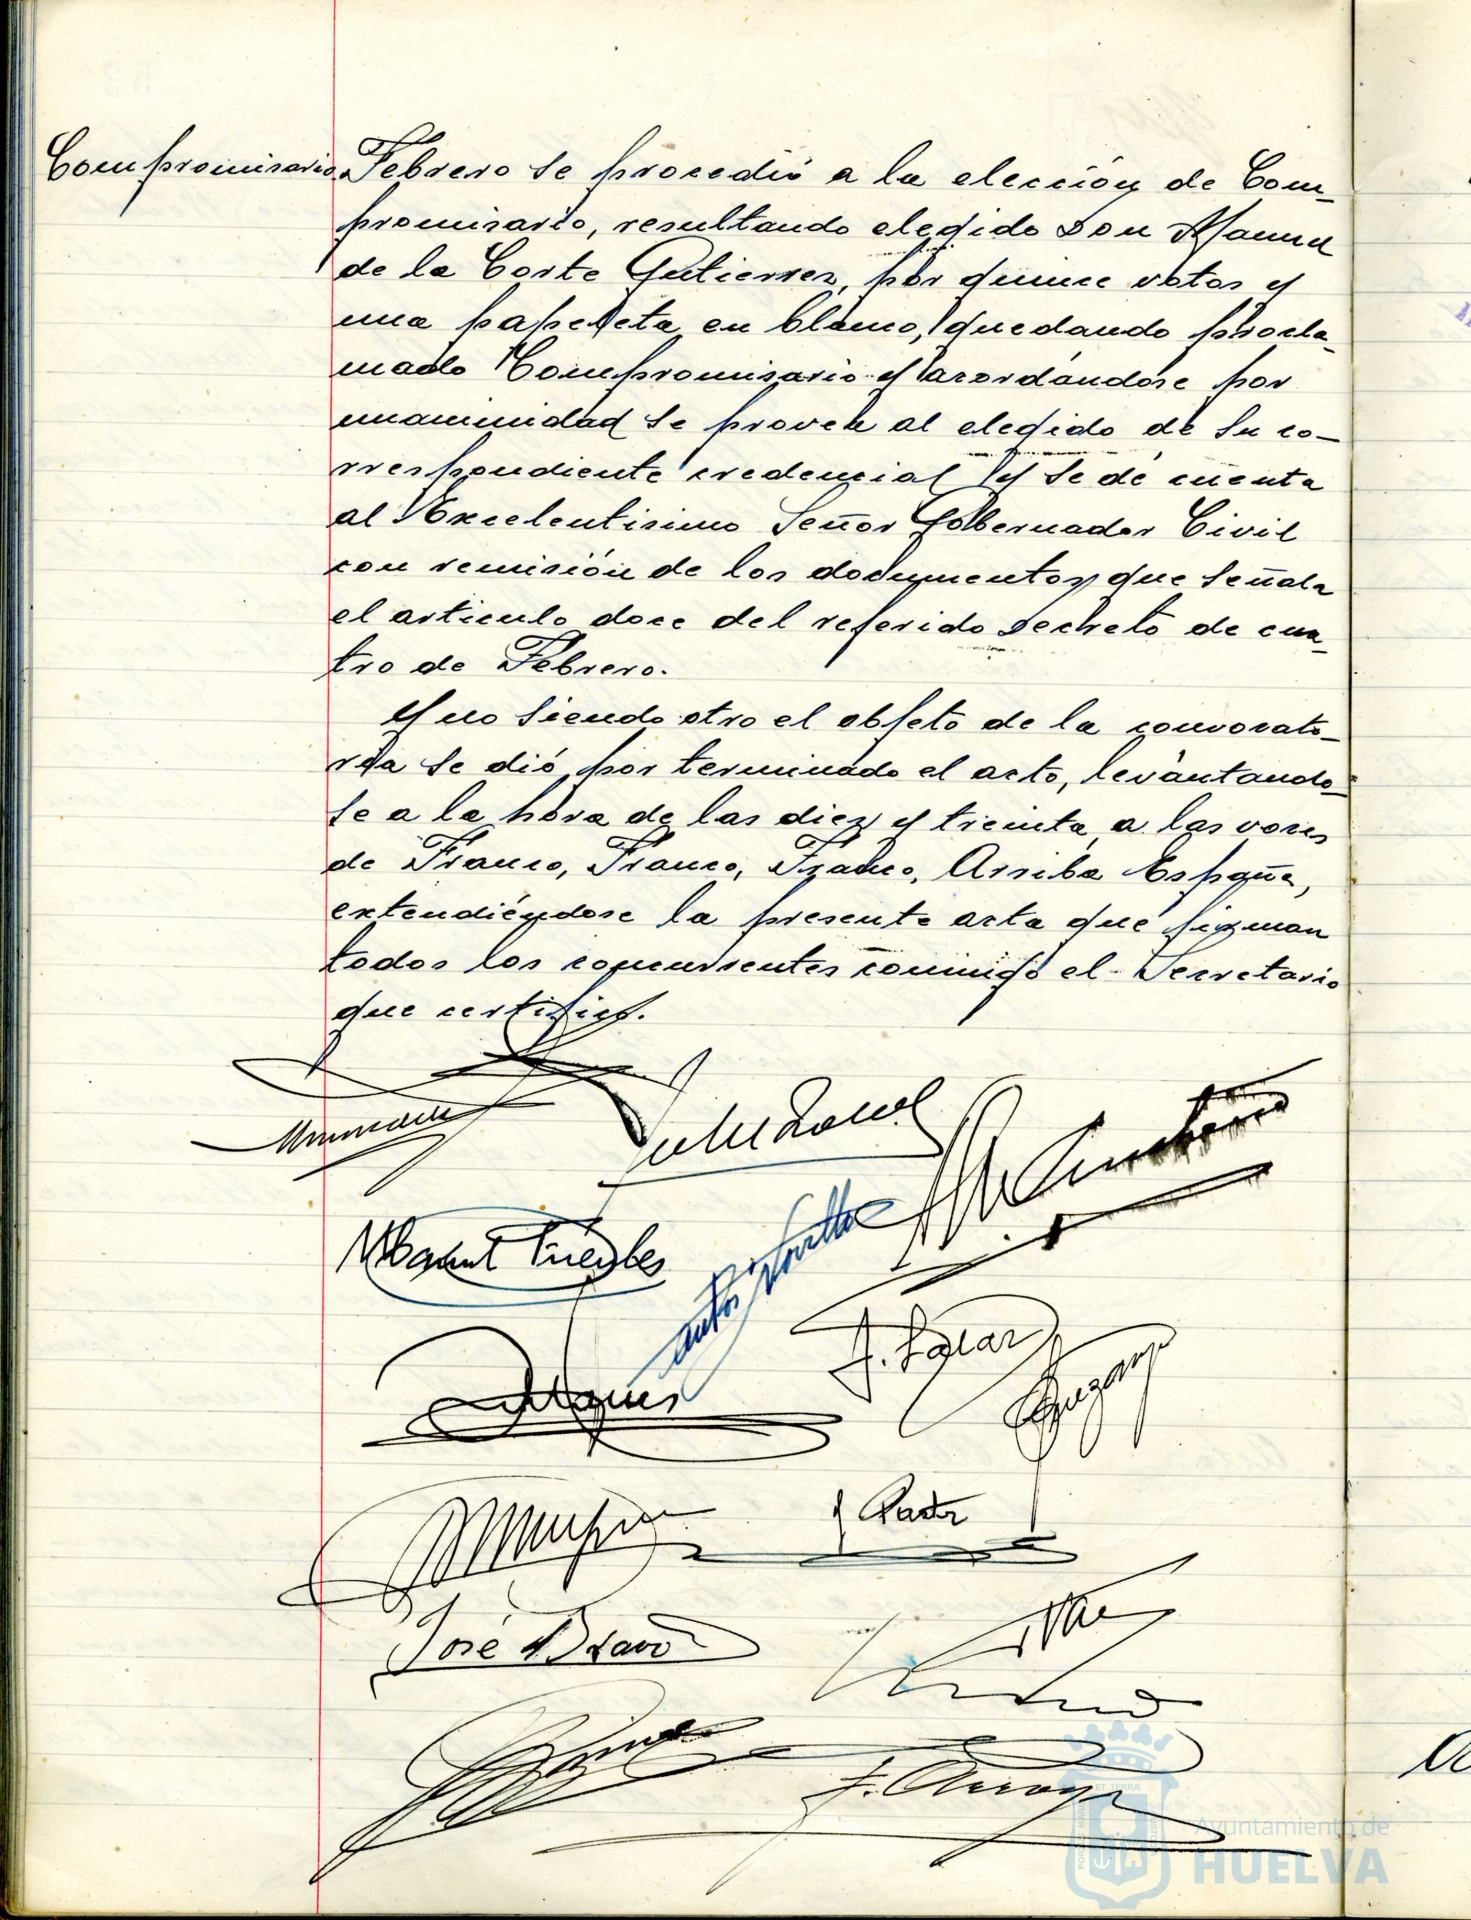 Compromisario
Febrero se procedió a la elección de Com-
promisario, resultando elegido Don Manuel
de la Corte Gutierrez, por quince votos y
una papeleta en blanco, quedando procla-
mado Compromisario y acordándose por
unanimidad se provea al elegido de su co-
rrespondiente credencial y se dé cuenta
al Excelentisimo Señor Gobernador Civil
con remisión de los documentos que señala
el articulo doce del referido Decreto de cua-
tro de Febrero.
Y no siendo otro el objeto de la convocato-
ria se dió por terminado el acto, levantando-
se a la hora de las diez y treinta a las voces
de Franco, Franco, Franco, Arriba España,
extendiéndose la presente acta que firman
todos los concurrentes conmigo el Secretario
que certifico.
J. Salas
José Bravo
F. Arroyo
ET TERRAE
Ayuntamiento de
HUELVA